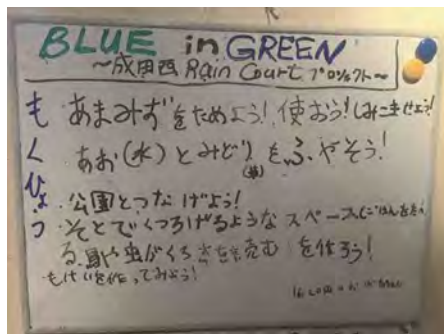 BLUE in GREEN
～成田西 Rain Court プロジェクト～
もくひょう
あまみずをためよう！使おう！しみこませよう！
あお（水）とみどりをふやそう！
公園とつなげよう！
そとでくつろげるようなスペース
る 鳥や虫がくる 本を売む を作ろう！
もけいを作ってみよう！